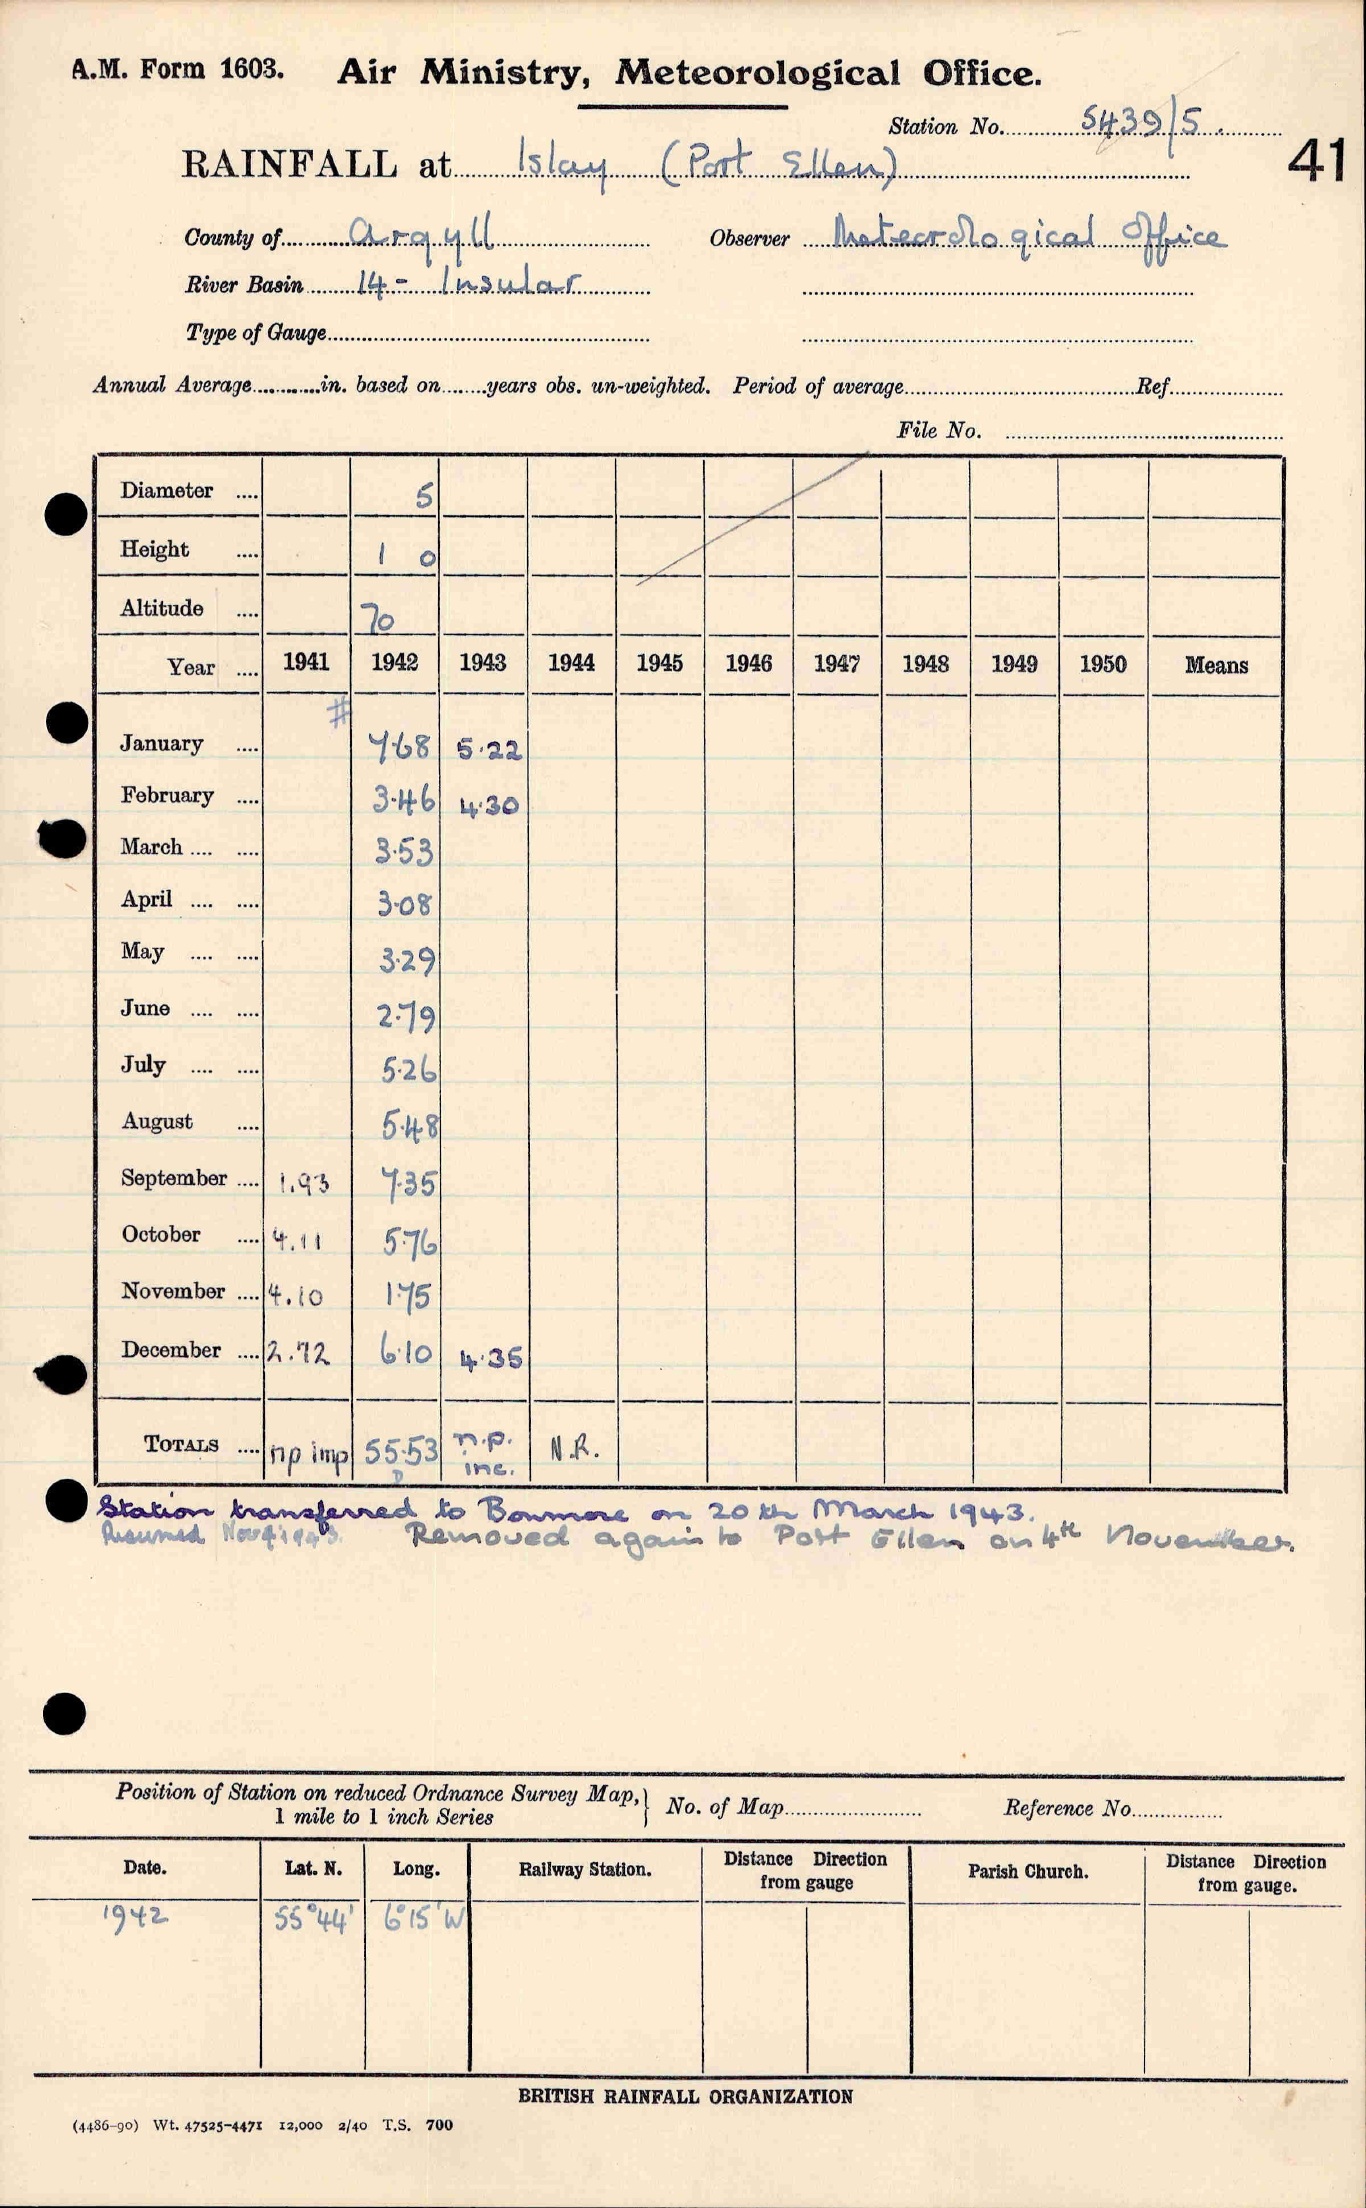 A.M. Form 1603. Air Ministry, Meteorological Office.
Station No. 5439/5.
41
RAINFALL at Islay (Port Ellen)
County of Argyll Observer Meteorological Office
River Basin 14 - Insular
Type of Gauge
Annual Average in. based on years obs. un-weighted. Period of average Ref.
File No.
Diameter .... 5
Height .... 1 0
Altitude .... 70
Year .... 1941 1942 1943 1944 1945 1946 1947 1948 1949 1950 Means
#
January .... 7.68 5.22
February .... 3.46 4.30
March .... .... 3.53
April .... .... 3.08
May .... .... 3.29
June .... .... 2.79
July .... .... 5.26
August .... 5.48
September .... 1.93 7.35
October .... 4.11 5.76
November .... 4.10 1.75
December .... 2.72 6.10 4.35
TOTALS .... np imp 55.53 n.p. inc. N.R.
D
Station transferred to Bowmore on 20th March 1943.
Resumed Nov 4 1943. Removed again to Port Ellen on 4th November.
Position of Station on reduced Ordnance Survey Map, 1 mile to 1 inch Series } No. of Map Reference No.
Date. Lat. N. Long. Railway Station. Distance Direction from gauge Parish Church. Distance Direction from gauge.
1942 55°44' 6°15'W
BRITISH RAINFALL ORGANIZATION
(4486-90) Wt. 47525-4471 12,000 2/40 T.S. 700